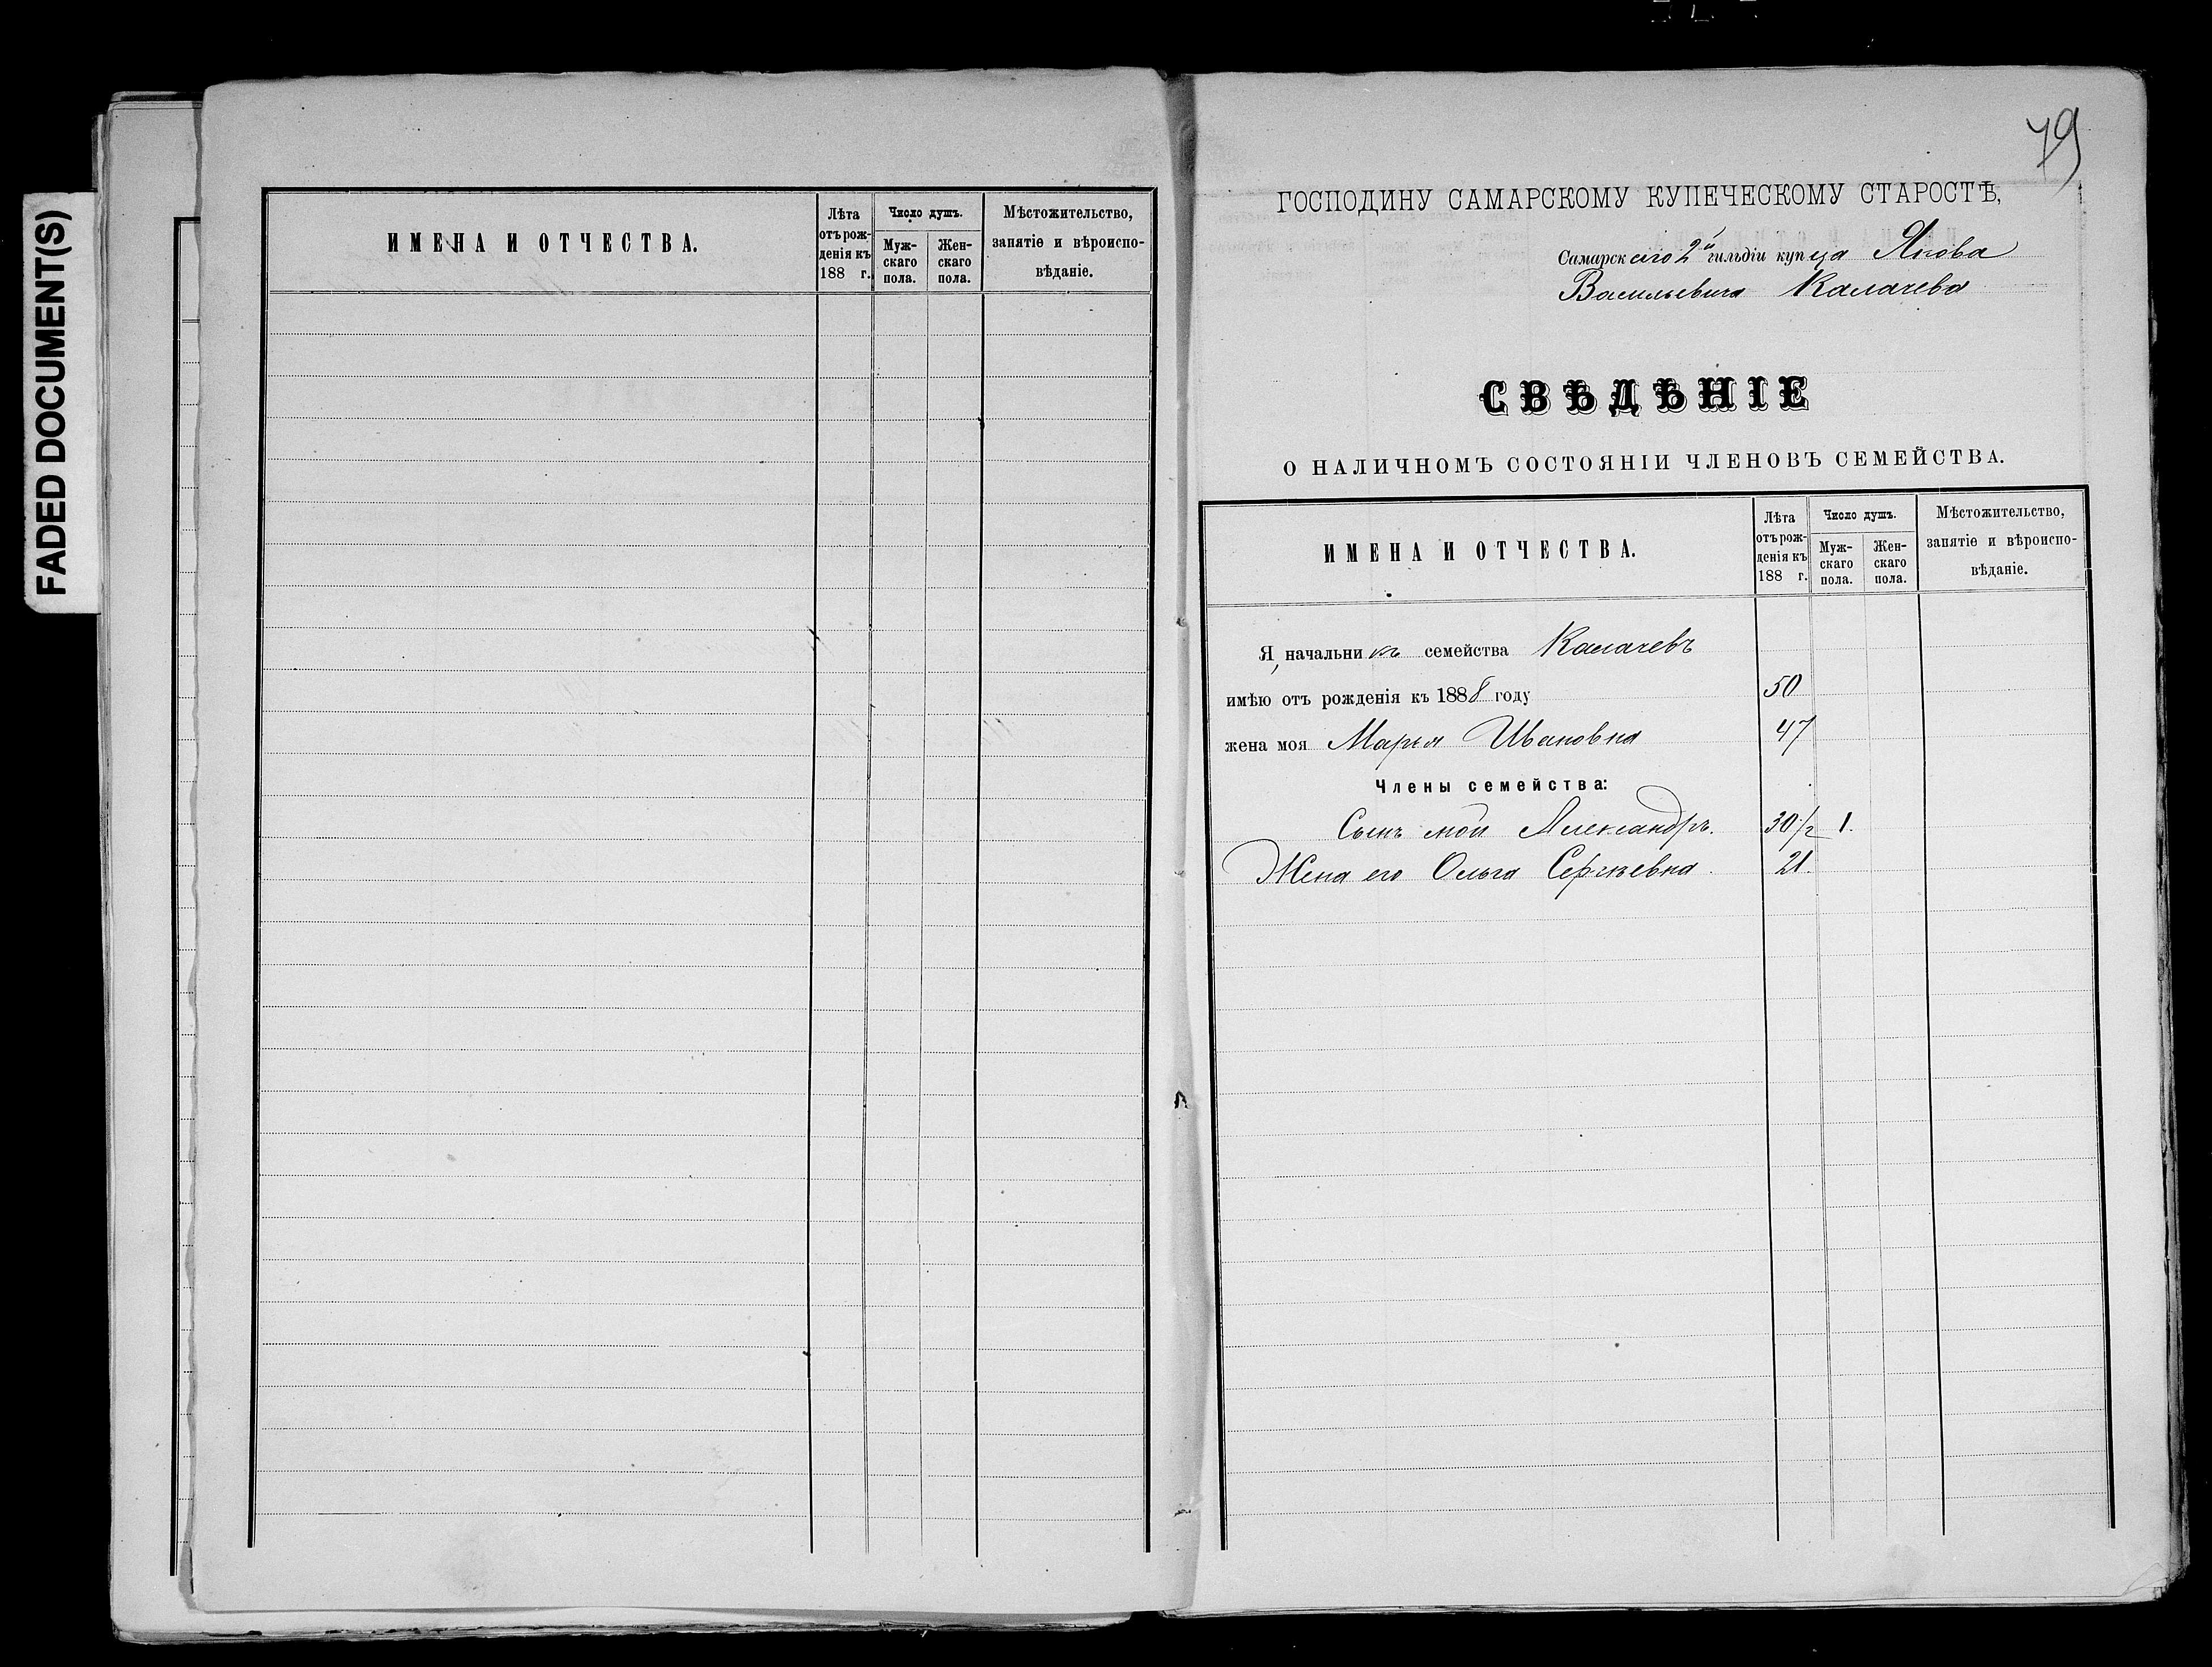 FADED DOCUMENT(S)
ИМЕНА И ОТЧЕСТВА.
Лѣта
отъ рож-
денія къ
188 г.
Число душъ.
Муж-
скаго
пола.
Жен-
скаго
пола.
Мѣстожительство,
занятіе и вѣроиспо-
вѣданіе.
79
ГОСПОДИНУ САМАРСКОМУ КУПЕЧЕСКОМУ СТАРОСТѢ,
Самарскаго 2й гильдіи купца Якова
Васильевича Калачева
СВѢДѢНІЕ
О НАЛИЧНОМЪ СОСТОЯНІИ ЧЛЕНОВЪ СЕМЕЙСТВА.
ИМЕНА И ОТЧЕСТВА.
Лѣта
отъ рож-
денія къ
188 г.
Число душъ.
Муж-
скаго
пола.
Жен-
скаго
пола.
Мѣстожительство,
занятіе и вѣроиспо-
вѣданіе.
Я, начальникъ семейства Калачевъ
имѣю отъ рожденія къ 1888 году 50
жена моя Марья Ивановна 47
Члены семейства:
Сынъ мой Александръ. 30 1/2 1.
Жена его Ольга Сергѣевна. 21.